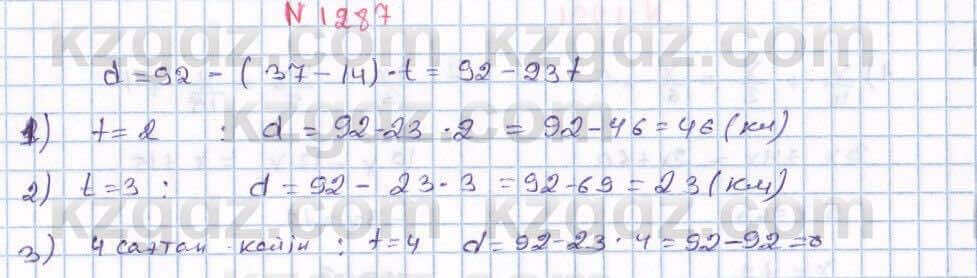 N 1287
d = 92 - (37 - 14) · t = 92 - 23t
1) t = 2 : d = 92 - 23 · 2 = 92 - 46 = 46 (км)
2) t = 3 : d = 92 - 23 · 3 = 92 - 69 = 23 (км)
3) 4 сағтан кейін : t = 4 d = 92 - 23 · 4 = 92 - 92 = 0
kzgdz.com
kzgdz.com
kzgdz.com
kzgdz.com
kzgdz.com